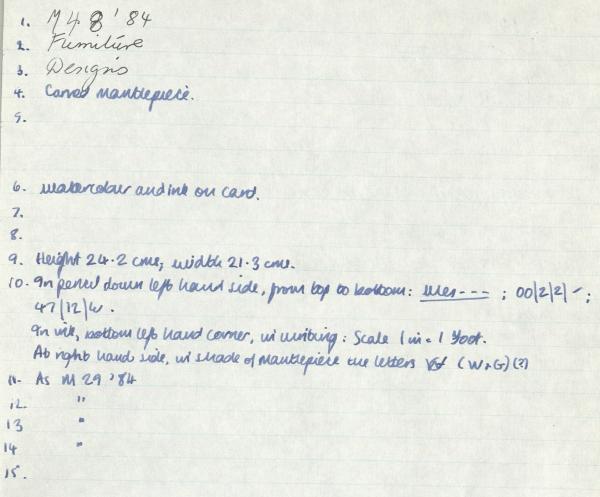 1. M48'84
2. Furniture
3. Designs
4. Carved Mantlepiece.
5.
6. Watercolour and ink on card.
7.
8.
9. Height 24.2 cms, width 21.3 cms.
10. In pencil down left hand side, from top to bottom: --- ; 00/2/2/- ;
47/12/w.
In ink, bottom left hand corner, in writing: Scale 1 in = 1 foot.
At right hand side, in shade of mantlepiece the letters (W+G)(?)
11. As M29'84
12. "
13 "
14 "
15.